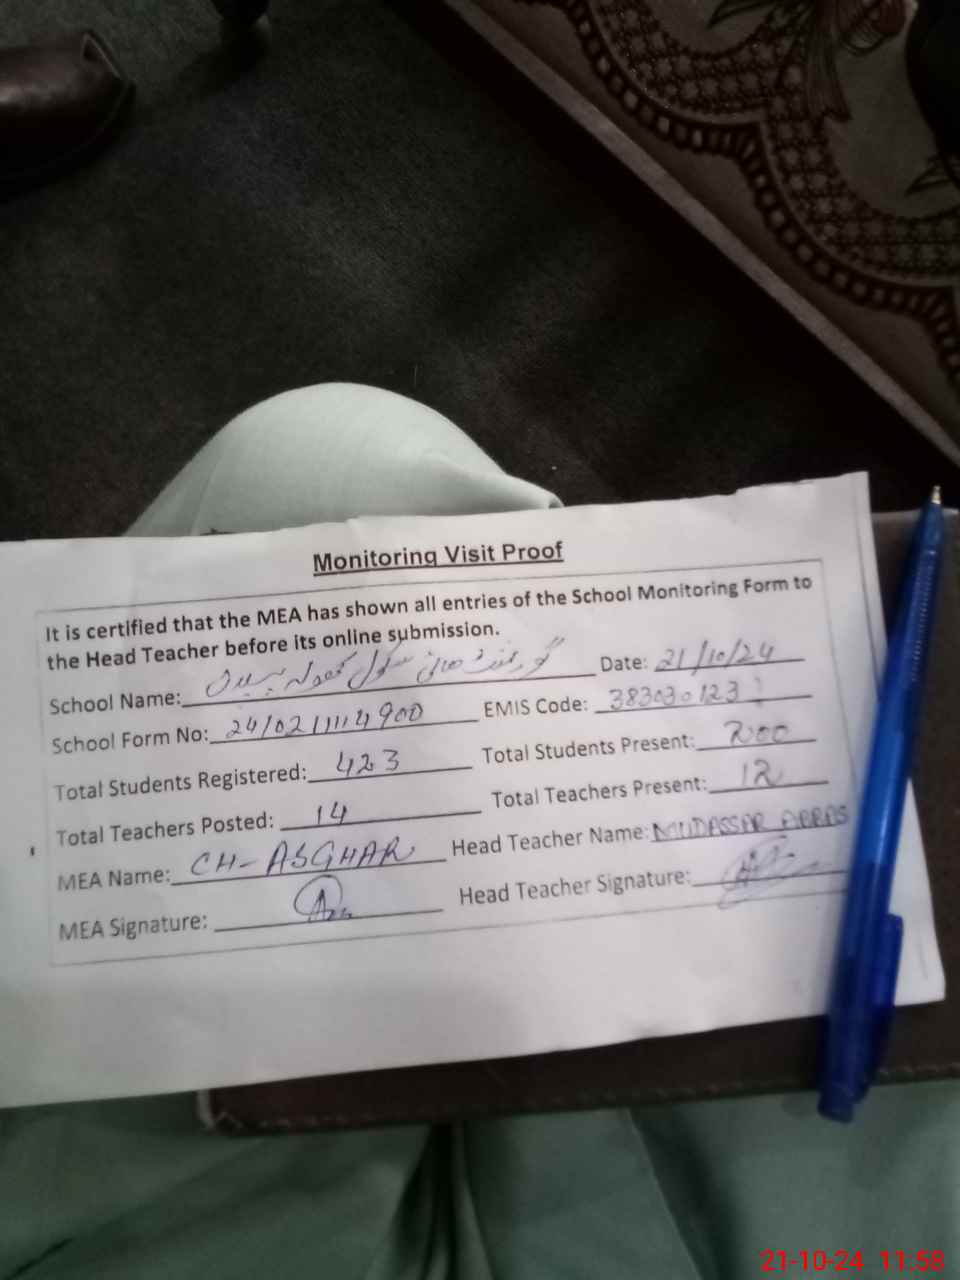 Monitoring Visit Proof
It is certified that the MEA has shown all entries of the School Monitoring Form to
the Head Teacher before its online submission.
School Name: گورنمنٹ ہائی سکول Date: 21/10/24
School Form No: 24/021114900 EMIS Code: 383030123
Total Students Registered: 423 Total Students Present: 200
Total Teachers Posted: 14 Total Teachers Present: 12
MEA Name: CH-ASGHAR Head Teacher Name: MUDASSAR ABBAS
MEA Signature: Head Teacher Signature:
21-10-24 11:58